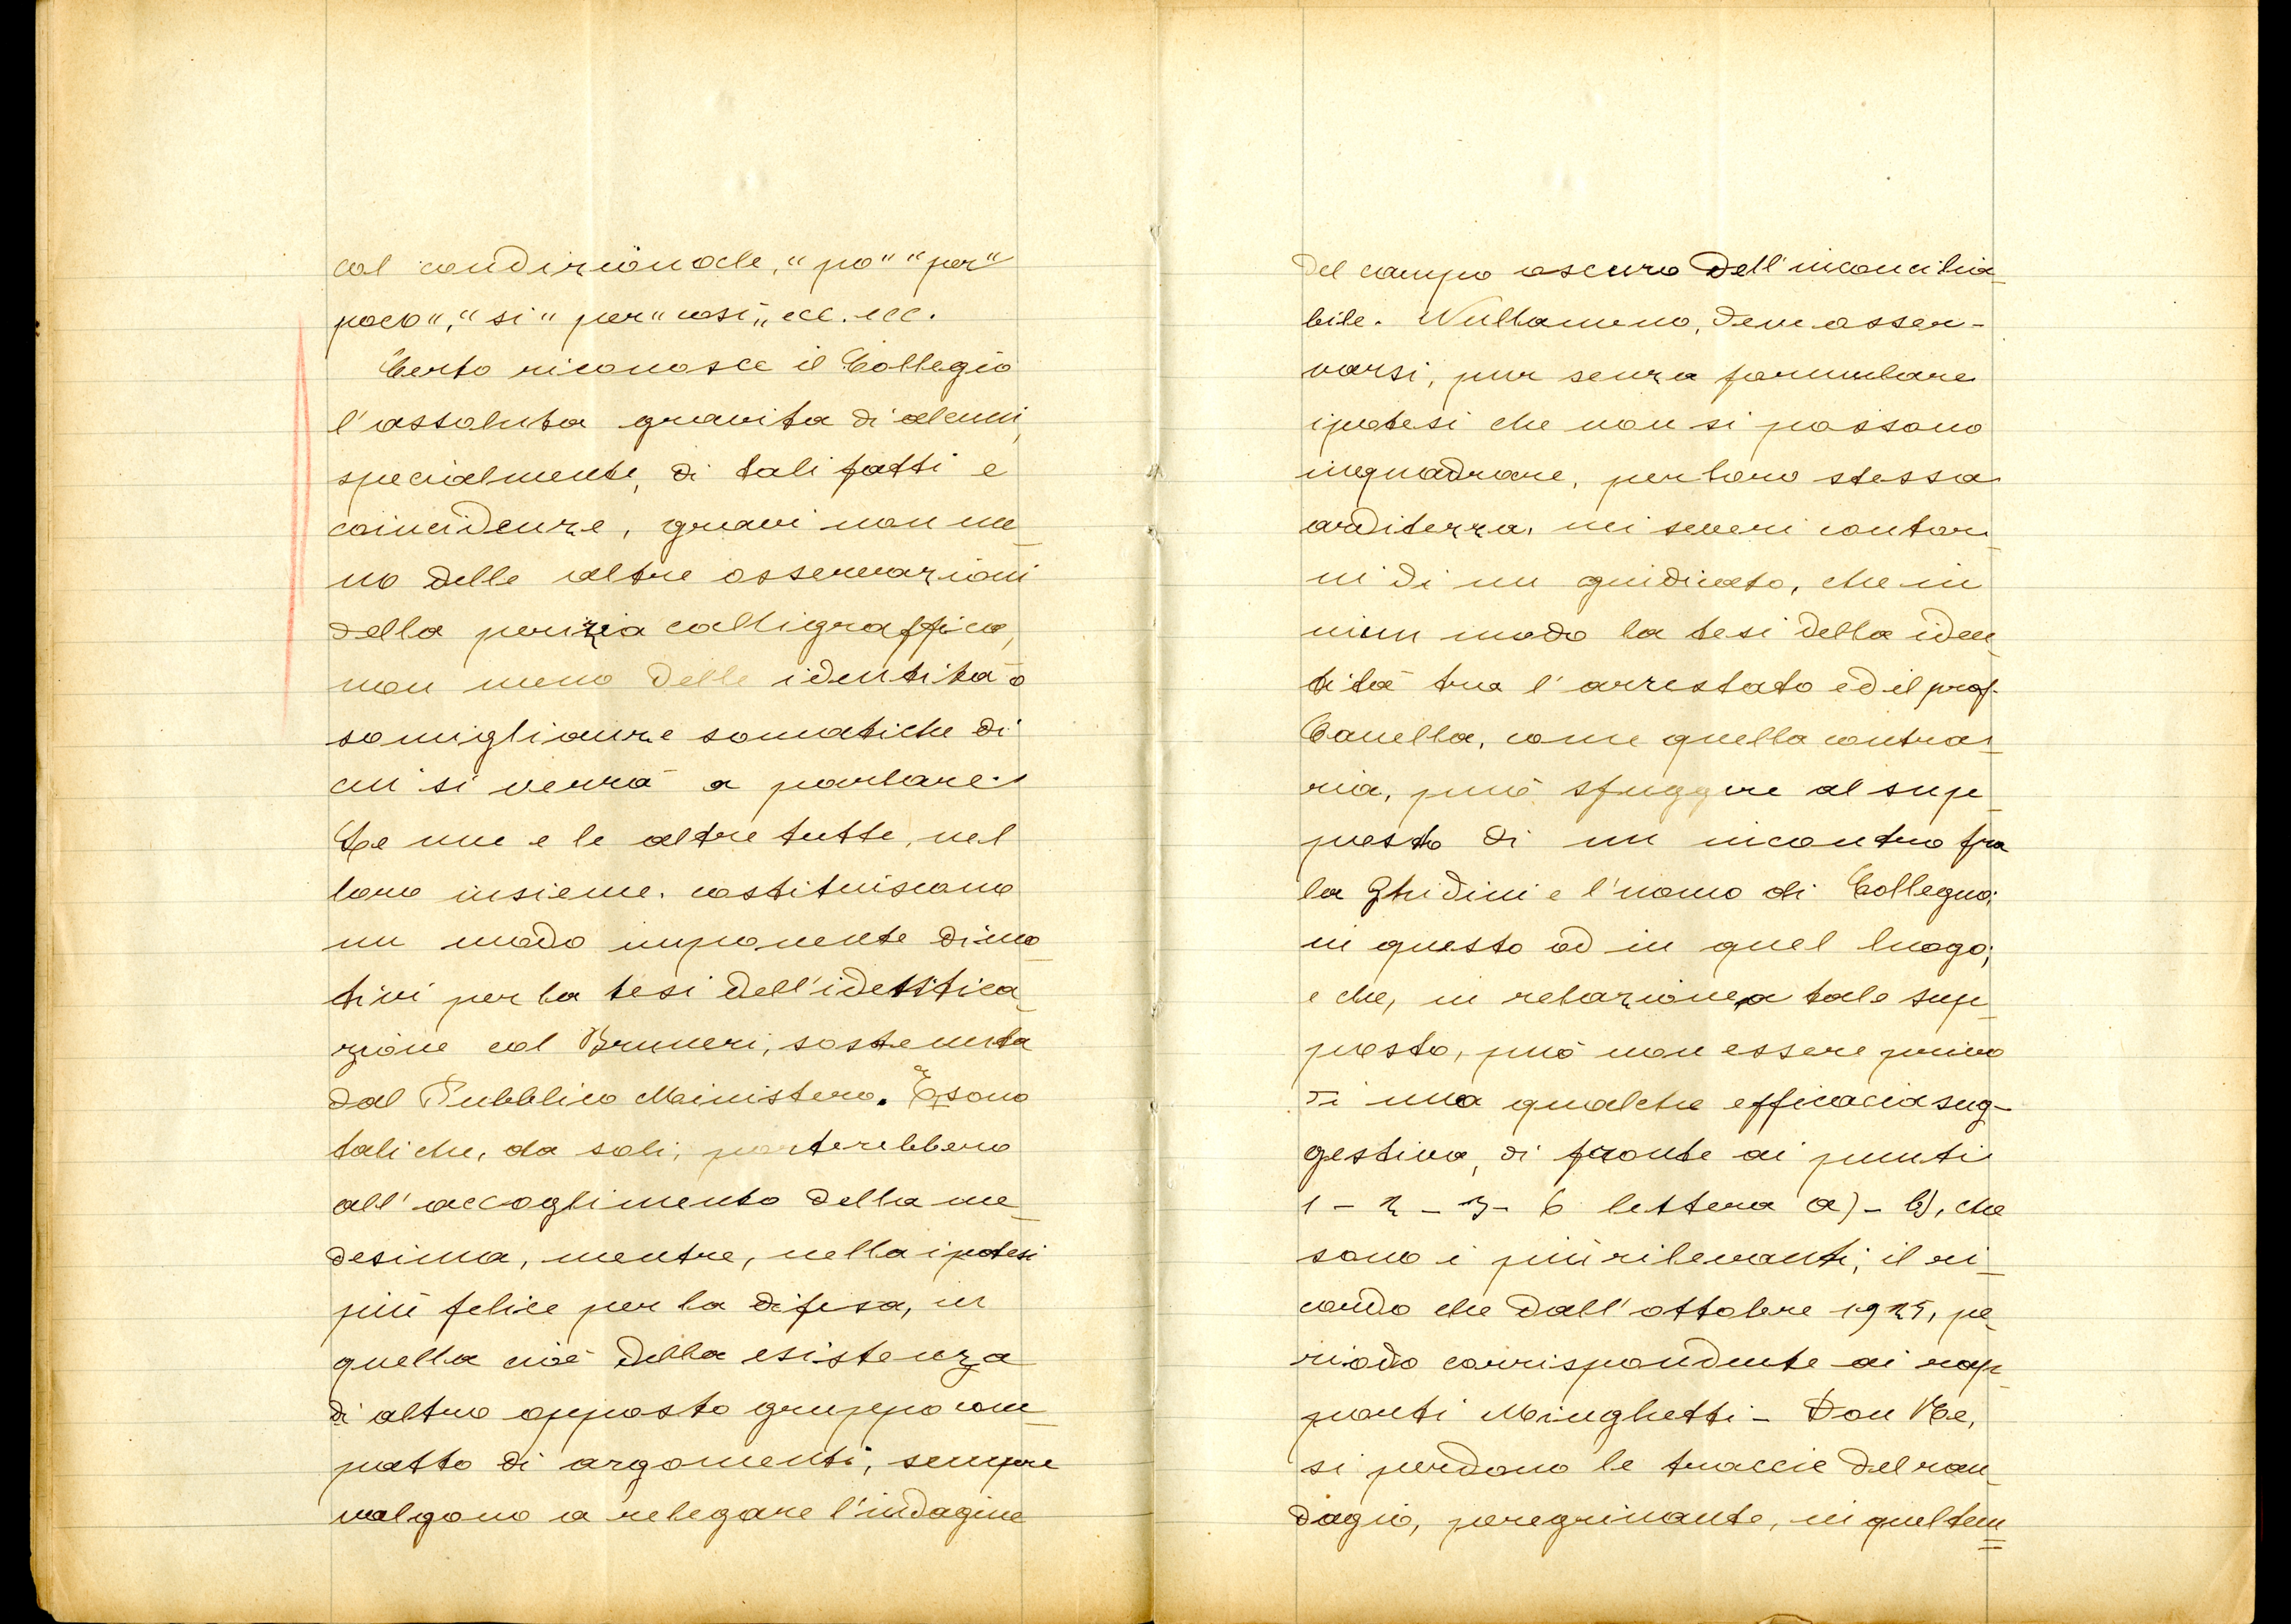 col condizionale, "po" "per"
poco", "si" per "così" ecc. ecc.
Certo riconosce il Collegio
l'assoluta gravita di alcuni,
specialmente, di tali fatti e
coincidenze, gravi non me_
no delle altre osservazioni
della perizia calligraffica,
non meno delle identità o
somiglianze somatiche di
cui si verrà a parlare.
Le une e le altre tutte, nel
loro insieme, costituiscono
un modo imponente di mo_
tivi per la tesi dell'identifica_
zione col Bruneri, sostenuta
dal Pubblico Ministero. E sono
tali che, da soli, porterebbero
all'accoglimento della me_
desima, mentre, nella ipotesi
più felice per la difesa, in
quella cioè della esistenza
di altro opposto gruppo com_
patto di argomenti, sempre
valgono a relegare l'indagine
del campo oscuro dell'inconcilia_
bile. Nullameno, deve osser-
varsi, pur senza formulare
ipotesi che non si possono
inquadrare, per loro stessa
arditezza, nei severi contor_
ni di un giudicato, che in
niun modo la tesi della iden_
tità tra l'arrestato ed il prof.
Canella, come quella contra_
ria, può sfuggire al sup_
posto di un incontro fra
la Ghidini e l'uomo di Collegno;
in questo od in quel luogo;
e che, in relazione a tale sup_
posto, può non essere privo
di una qualche efficacia sug-
gestiva, di fronte ai punti
1 - 2 - 3 - 6 lettera a) - b), che
sono i più rilevanti, il ri_
cordo che dall'ottobre 1925, pe_
riodo corrispondente ai rap_
porti Minghetti - Don Me,
si perdono le traccie del ran_
dagio, peregrinante, in quel tem_